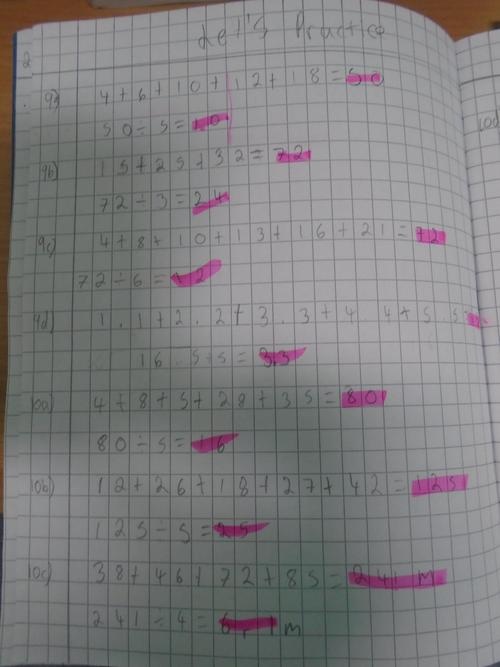 Let's Practice
9a) 4 + 6 + 10 + 12 + 18 = 50
50 ÷ 5 = 10
9b) 15 + 25 + 32 = 72
72 ÷ 3 = 24
9c) 4 + 8 + 10 + 13 + 16 + 21 = 72
72 ÷ 6 = 12
9d) 1.1 + 2.2 + 3.3 + 4.4 + 5.5 =
16.5 ÷ 5 = 3.3
10a) 4 + 8 + 5 + 28 + 35 = 80
80 ÷ 5 = 16
10b) 12 + 26 + 18 + 27 + 42 = 125
125 ÷ 5 = 25
10c) 38 + 46 + 72 + 85 = 241 m
241 ÷ 4 = m